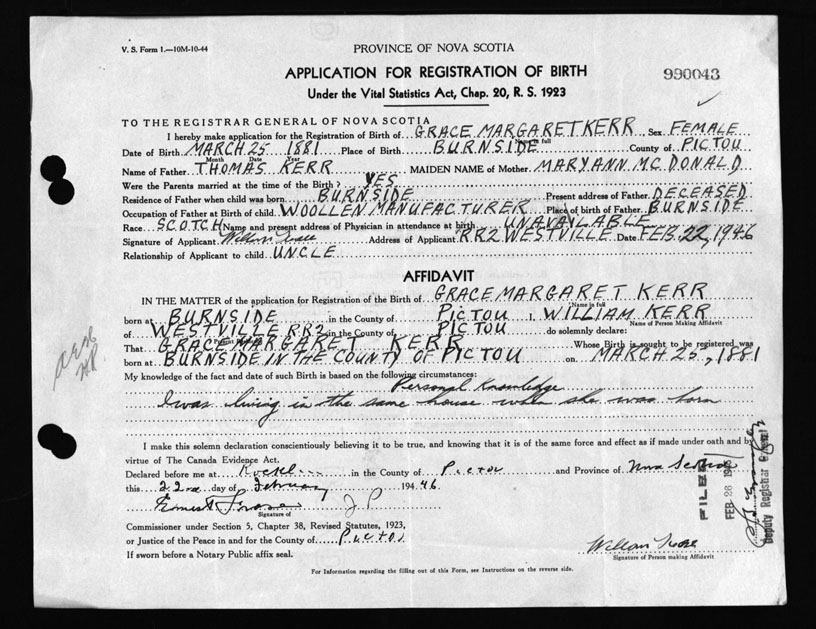 V. S. Form 1.—10M-10-44
PROVINCE OF NOVA SCOTIA
APPLICATION FOR REGISTRATION OF BIRTH
990043
Under the Vital Statistics Act, Chap. 20, R. S. 1923
TO THE REGISTRAR GENERAL OF NOVA SCOTIA
I hereby make application for the Registration of Birth of GRACE MARGARET KERR Sex FEMALE
Name in full
Date of Birth MARCH 25 1881 Place of Birth BURNSIDE County of PICTOU
Month Date Year
Name of Father THOMAS KERR MAIDEN NAME of Mother MARY ANN MC DONALD
Were the Parents married at the time of the Birth? YES
Residence of Father when child was born BURNSIDE Present address of Father DECEASED
Occupation of Father at Birth of child WOOLLEN MANUFACTURER Place of birth of Father BURNSIDE
Race SCOTCH Name and present address of Physician in attendance at birth UNAVAILABLE
Signature of Applicant Address of Applicant RR2 WESTVILLE Date FEB. 22, 1946
Relationship of Applicant to child UNCLE
AFFIDAVIT
IN THE MATTER of the application for Registration of the Birth of GRACE MARGARET KERR
Name in full
born at BURNSIDE in the County of PICTOU I, WILLIAM KERR
Name of Person Making Affidavit
of WESTVILLE RR2 in the County of PICTOU do solemnly declare:
That GRACE MARGARET KERR Whose Birth is sought to be registered was
born at BURNSIDE IN THE COUNTY OF PICTOU on MARCH 25, 1881
My knowledge of the fact and date of such Birth is based on the following circumstances:
Personal Knowledge
I was living in the same house when she was born
I make this solemn declaration conscientiously believing it to be true, and knowing that it is of the same force and effect as if made under oath and by
virtue of The Canada Evidence Act.
Declared before me at in the County of Pictou and Province of Nova Scotia
this 22nd day of February 194 46
Ernest J P
Signature of
Commissioner under Section 5, Chapter 38, Revised Statutes, 1923,
or Justice of the Peace in and for the County of Pictou
If sworn before a Notary Public affix seal.
Signature of Person making Affidavit
For Information regarding the filling out of this Form, see Instructions on the reverse side.
FILED
FEB 26
Deputy Registrar General